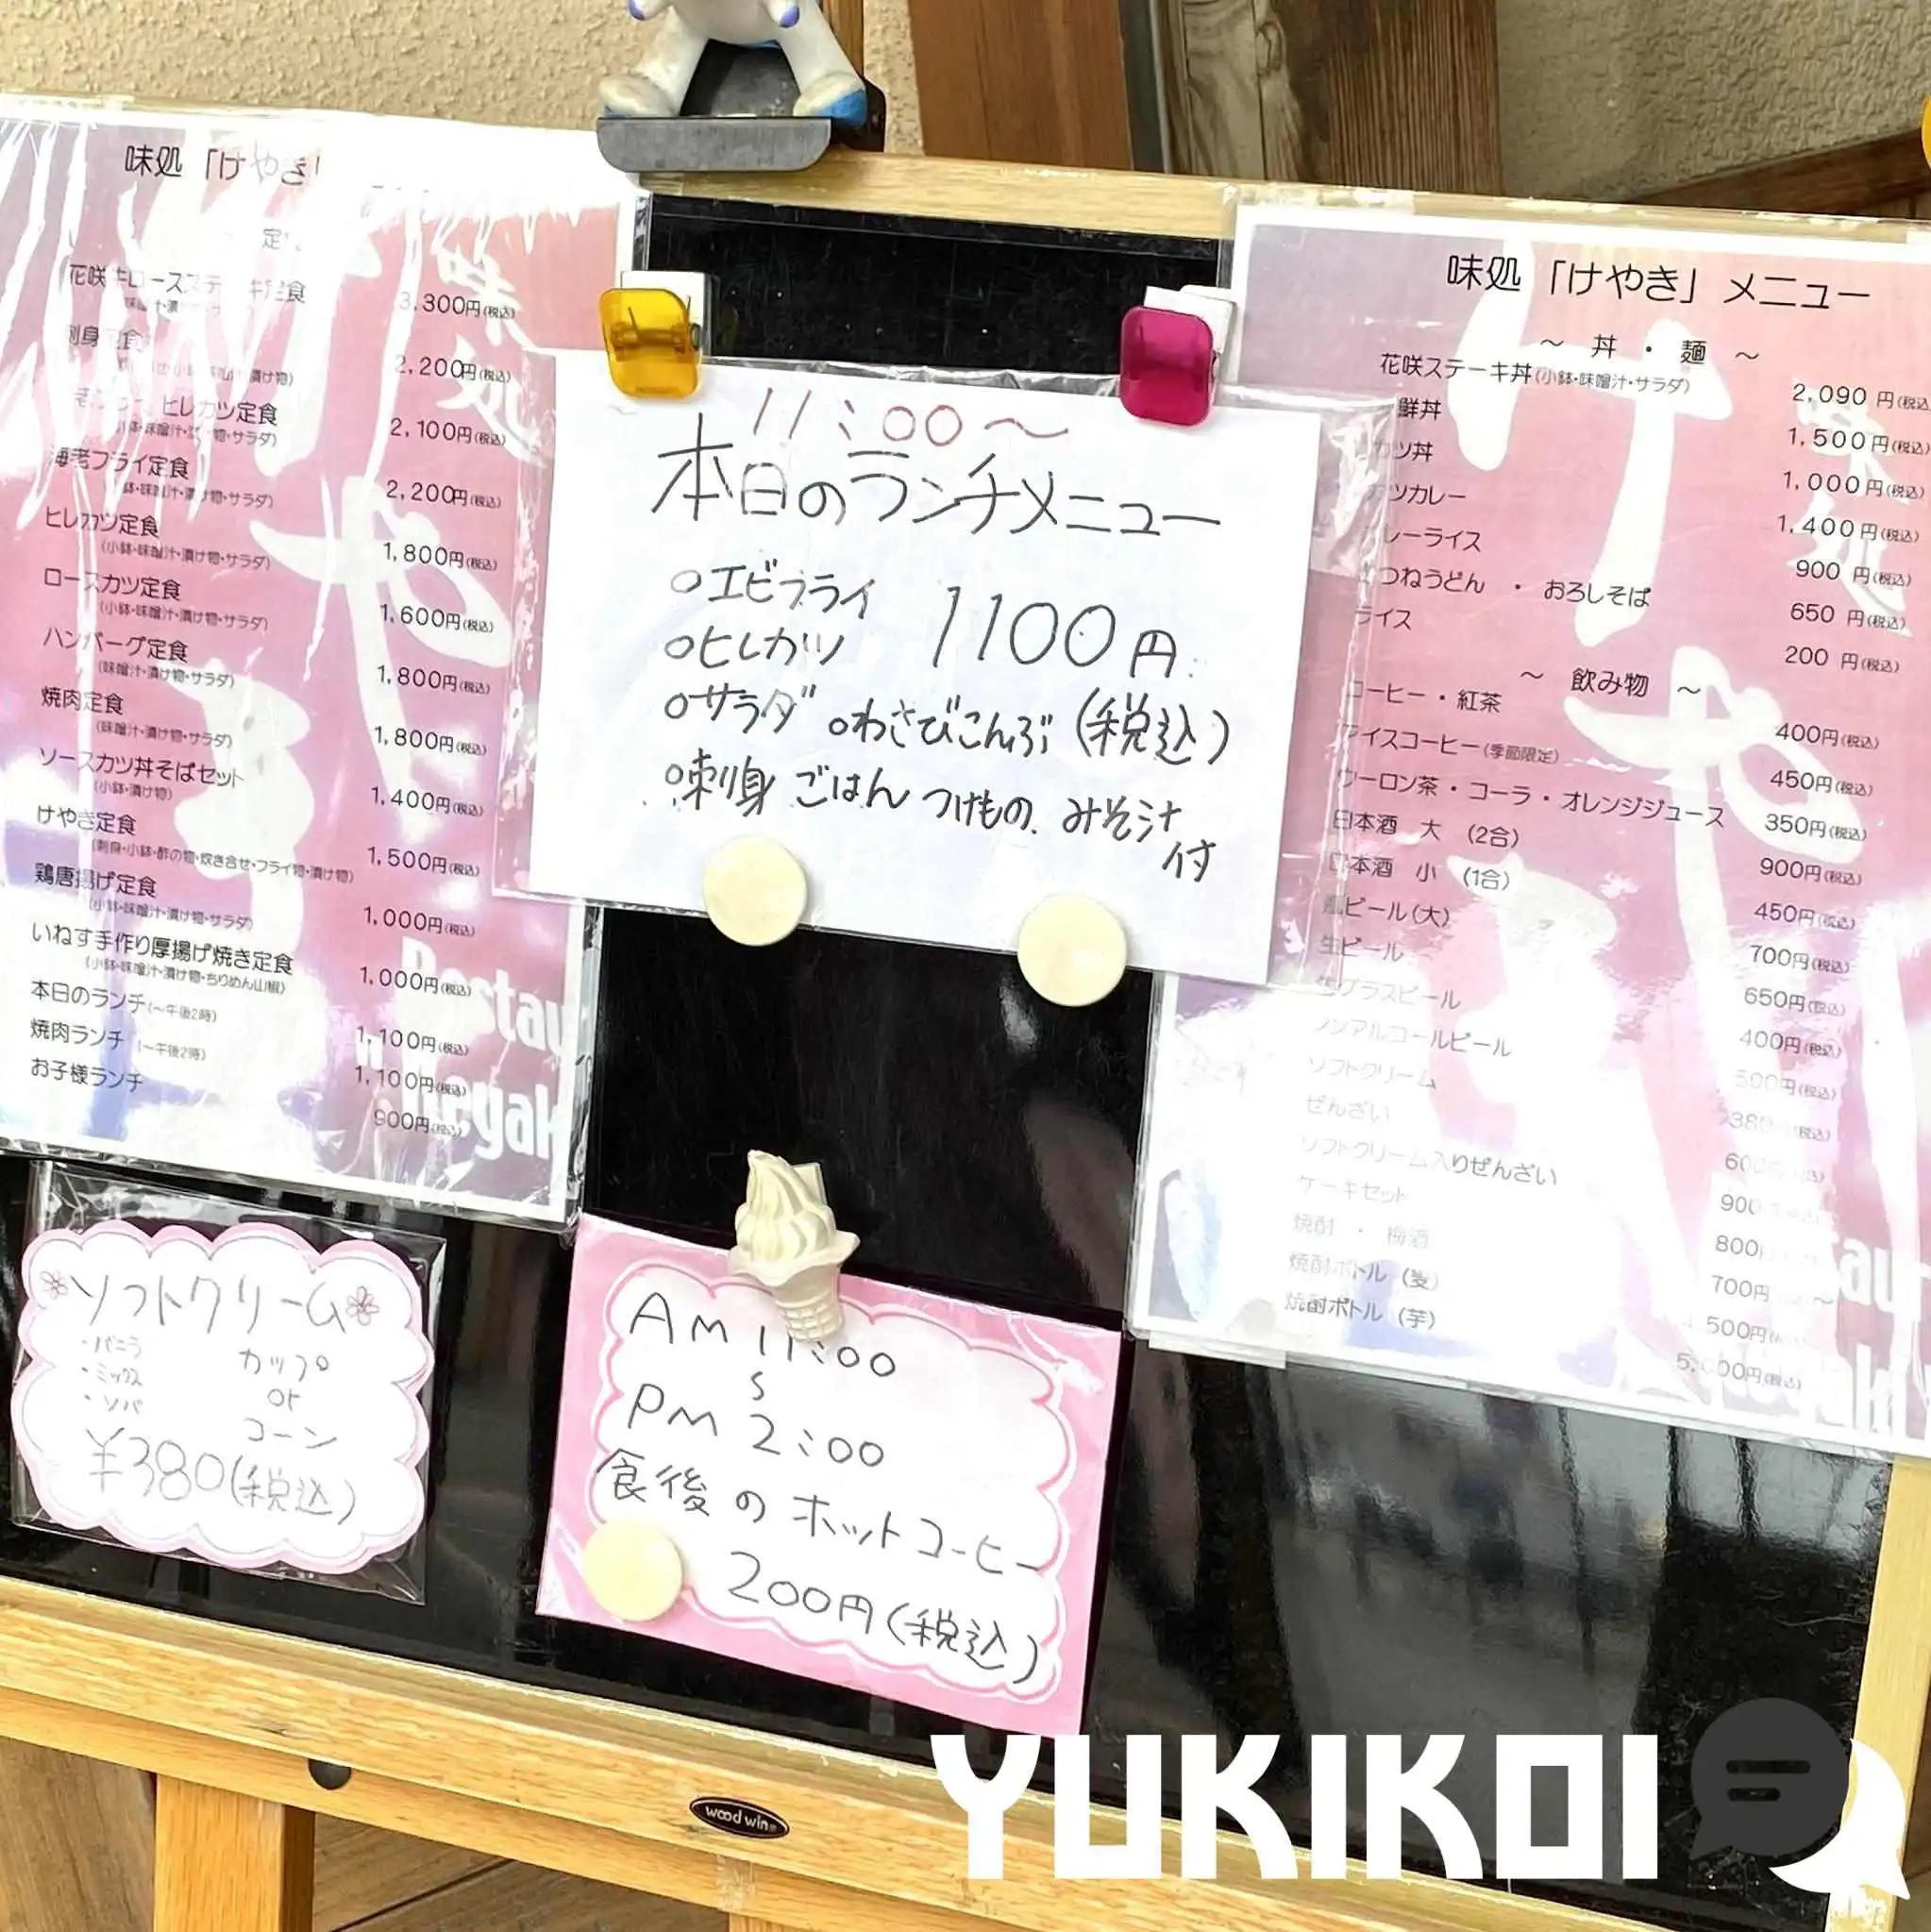 味処「けやき」
花咲牛ロースステーキ定食 3,300円(税込)
刺身定食 2,200円(税込)
ヒレカツ定食 2,100円(税込)
(小鉢・味噌汁・漬け物・サラダ)
海老フライ定食 2,200円(税込)
(小鉢・味噌汁・漬け物・サラダ)
ヒレカツ定食 1,800円(税込)
(小鉢・味噌汁・漬け物・サラダ)
ロースカツ定食 1,600円(税込)
(小鉢・味噌汁・漬け物・サラダ)
ハンバーグ定食 1,800円(税込)
(味噌汁・漬け物・サラダ)
焼肉定食 1,800円(税込)
(味噌汁・漬け物・サラダ)
ソースカツ丼そばセット 1,400円(税込)
(小鉢・漬け物)
けやき定食 1,500円(税込)
(刺身・小鉢・酢の物・炊き合せ・フライ物・漬け物)
鶏唐揚げ定食 1,000円(税込)
(小鉢・味噌汁・漬け物・サラダ)
いねす手作り厚揚げ焼き定食 1,000円(税込)
(小鉢・味噌汁・漬け物・ちりめん山椒)
本日のランチ(～午後2時) 1,100円(税込)
焼肉ランチ (～午後2時) 1,100円(税込)
お子様ランチ 900円(税込)
11:00～
本日のランチメニュー
○エビフライ
○ヒレカツ 1100円
○サラダ ○わさびこんぶ (税込)
○刺身 ごはん つけもの みそ汁
付
味処「けやき」メニュー
～ 丼 ・ 麺 ～
花咲ステーキ丼(小鉢・味噌汁・サラダ) 2,090円(税込
鮮丼 1,500円(税込)
カツ丼 1,000円(税込)
カツカレー 1,400円(税込)
レーライス 900円(税込)
つねうどん ・ おろしそば 650円(税込)
ライス 200円(税込)
～ 飲み物 ～
コーヒー・紅茶 400円(税込)
アイスコーヒー(季節限定) 450円(税込)
ウーロン茶・コーラ・オレンジジュース 350円(税込)
日本酒 大 (2合) 900円(税込)
日本酒 小 (1合) 450円(税込)
ビール(大) 700円(税込)
生ビール 650円(税込)
グラスビール 400円(税込)
ノンアルコールビール 500円(税込)
ソフトクリーム 380円(税込)
ぜんざい 600円
ソフトクリーム入りぜんざい 900
ケーキセット 800円
焼酎 ・ 梅酒 700円 ～
焼酎ボトル (麦) 500円
焼酎ボトル (芋) 5,000円(税込)
ソフトクリーム
・バニラ
・ミックス
・ソバ
カップ
or
コーン
¥380(税込)
AM 11:00
～
PM 2:00
食後のホットコーヒー
200円(税込)
wood win
YUKIKOI